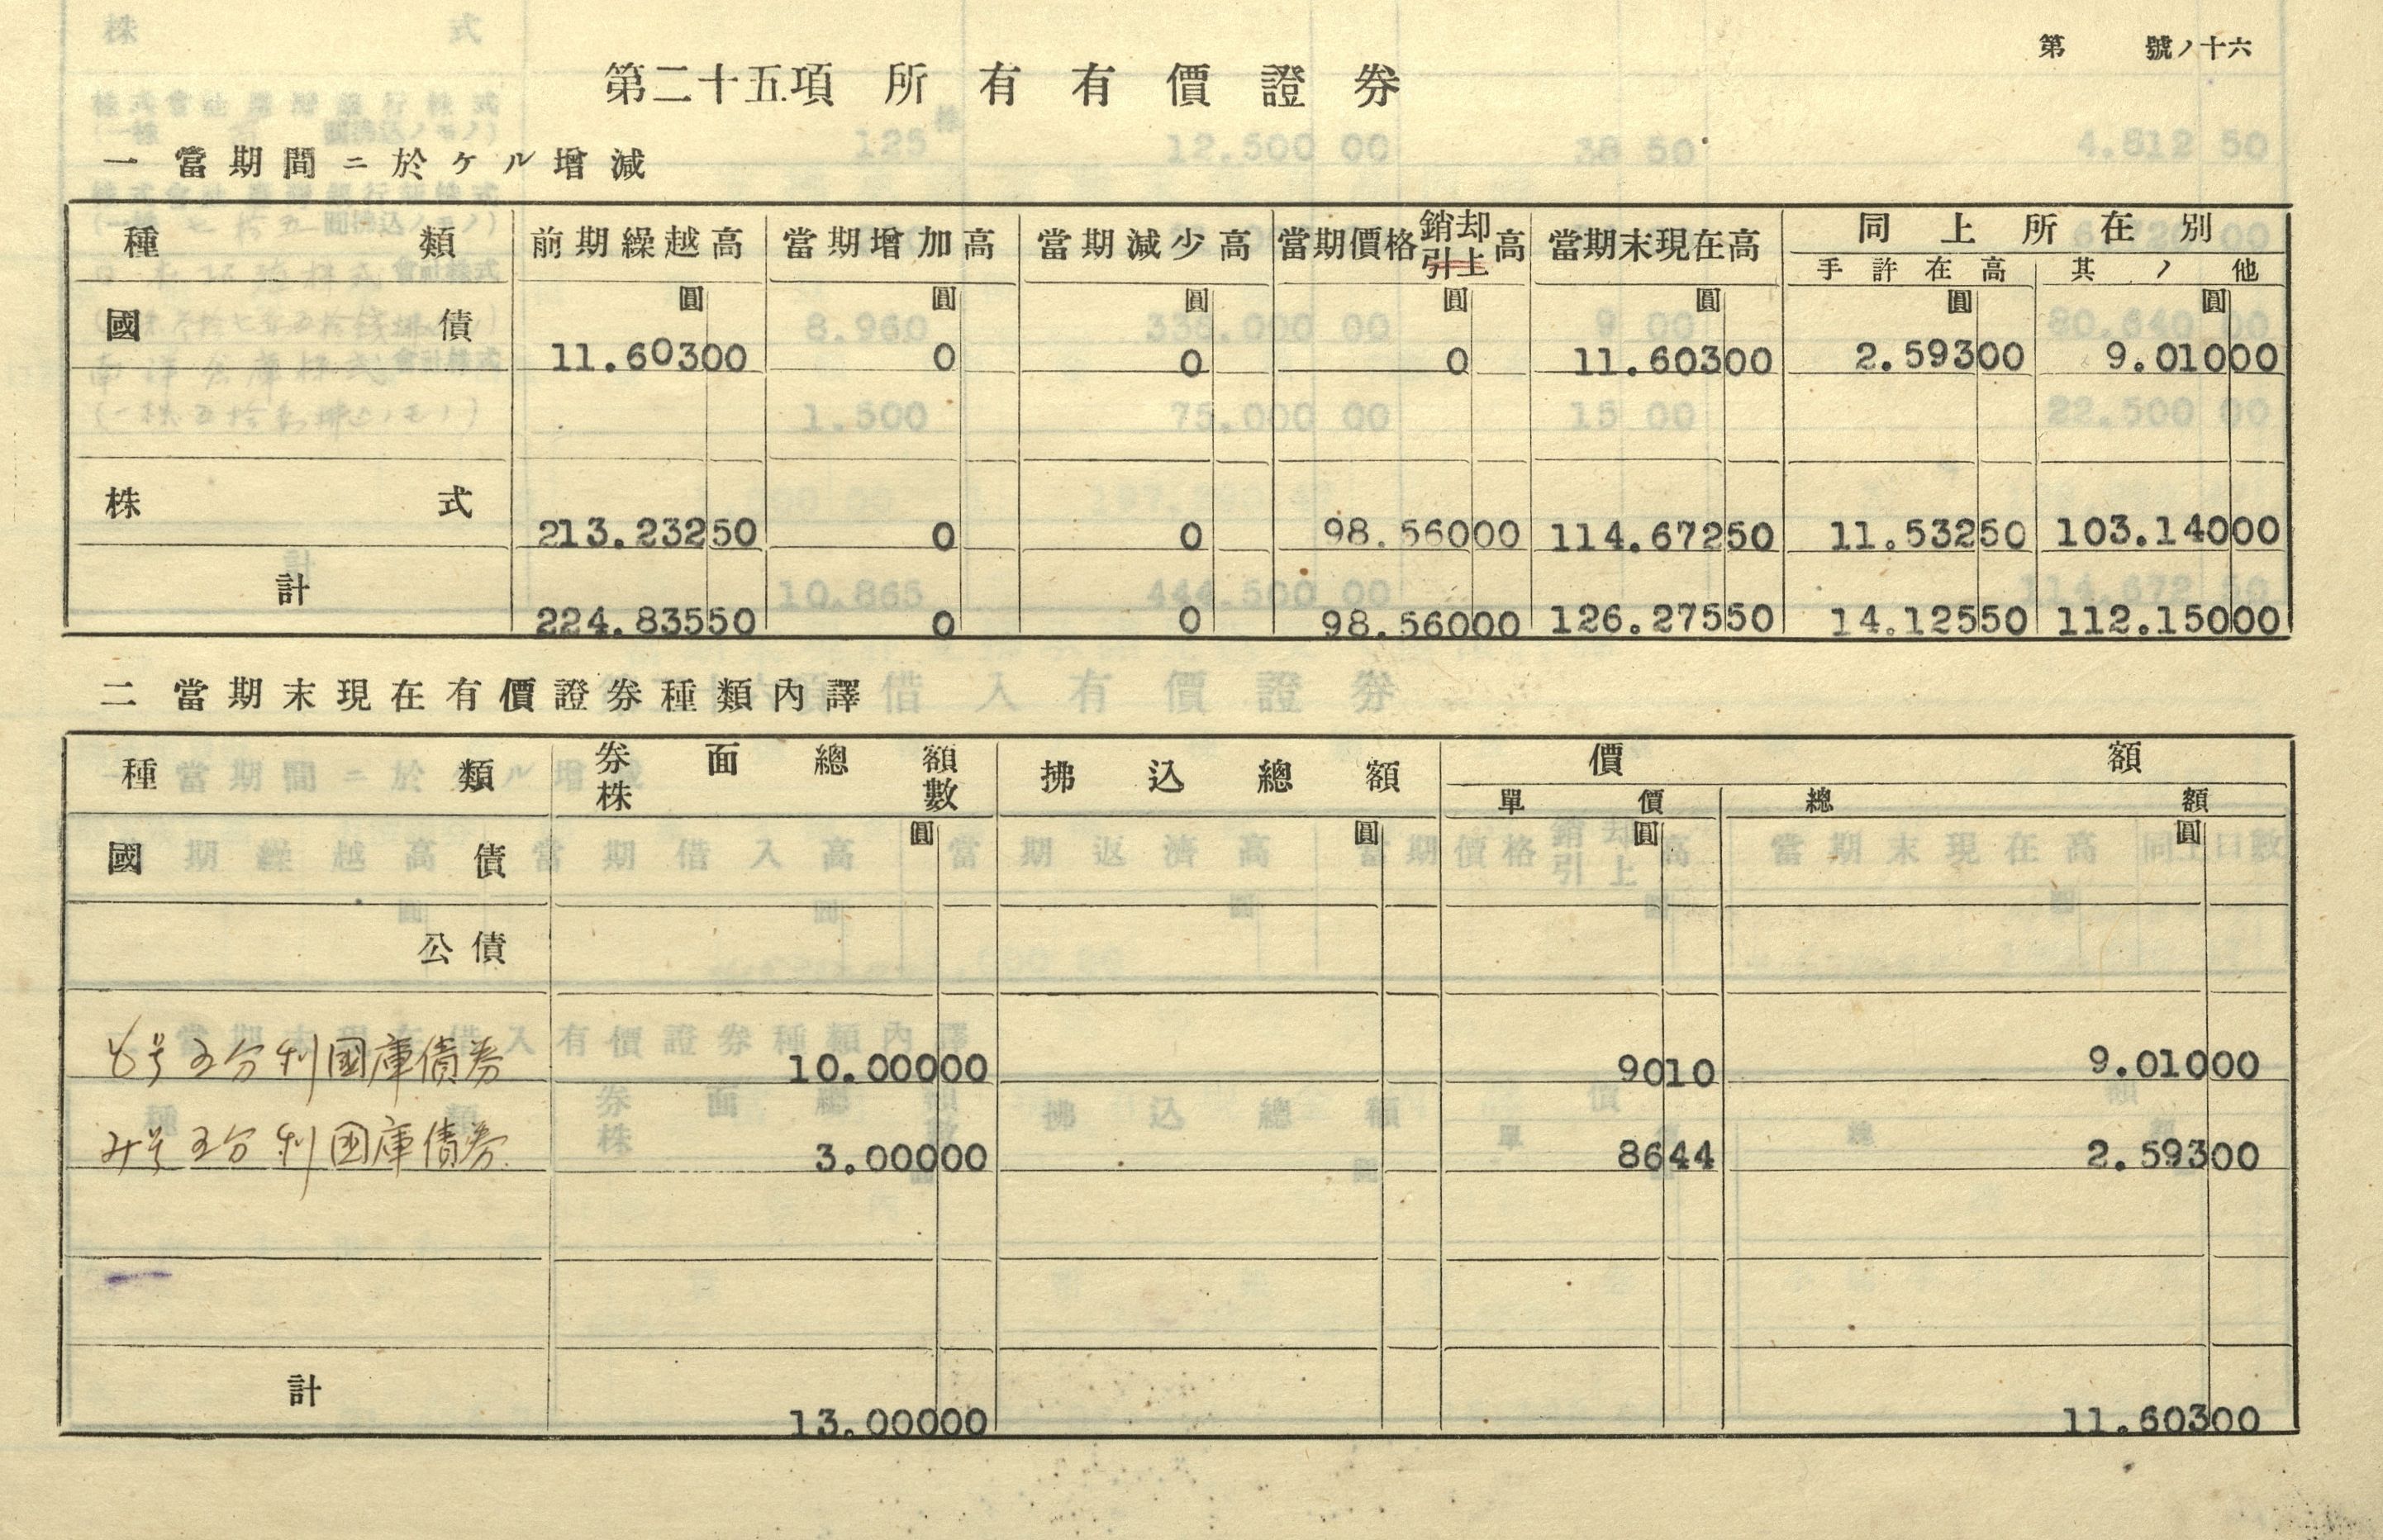 第 號ノ十六
第二十五項 所有有價證券
一 當期間ニ於ケル增減
種類 前期繰越高 當期增加高 當期減少高 當期價格銷却引上高 當期末現在高 同上所在別
手許在高 其ノ他
圓 圓 圓 圓 圓 圓 圓
國債 11.603 00 0 0 0 11.603 00 2.593 00 9.010 00
株式 213.232 50 0 0 98.560 00 114.672 50 11.532 50 103.140 00
計 224.835 50 0 0 98.560 00 126.275 50 14.125 50 112.150 00
二 當期末現在有價證券種類內譯
種類 券面總額 株數 拂込總額 價額
單價 總額
圓 圓 圓 圓
國債
公債
号五分利國庫債券 10.000 00 90 10 9.010 00
み号五分利国庫債券 3.000 00 86 44 2.593 00
計 13.000 00 11.603 00